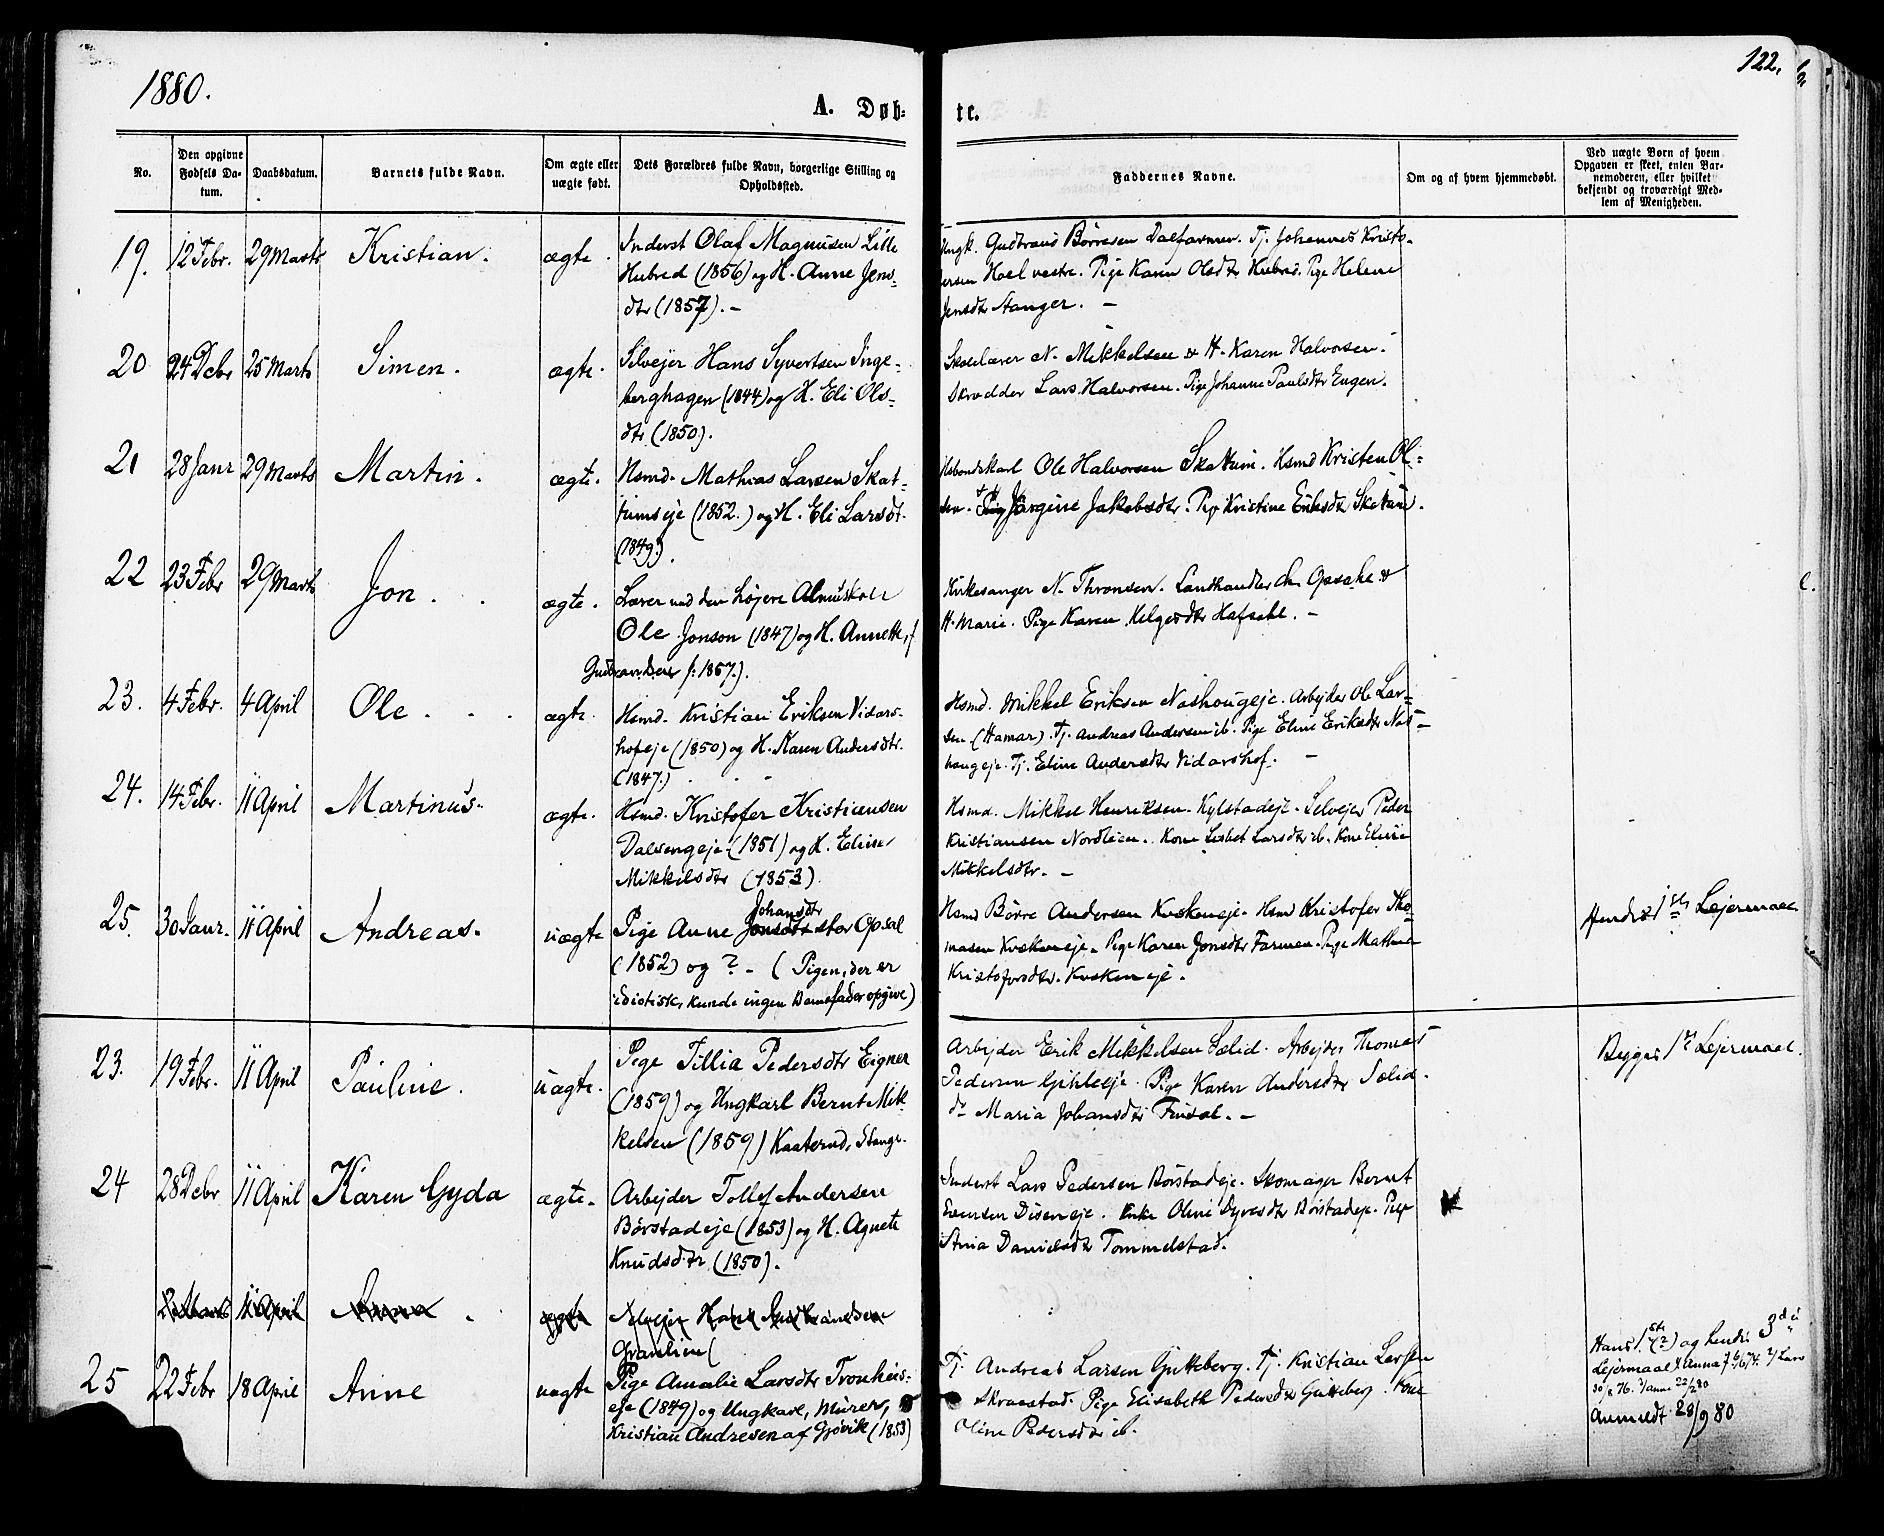 1880.
122.
A. Døb-
te.
No.
Den opgivne Fødsels Da-tum.
Daabsdatum.
Barnets fulde Navn.
Om ægte eller uægte født.
Dets Forældres fulde Navn, borgerlige Stilling og Opholdssted.
Faddernes Navne.
Om og af hvem hjemmedøbt.
Ved uægte Børn af hvem Opgaven er skeet, enten Bar-nemoderen, eller hvilket bekjendt og troværdigt Med-lem af Menigheden.
19. 12 Febr. 29 Marts Kristian. ægte.
Inderst Olaf Magnusen Lille
Hubred (1856) og H. Anne Jens-
dtr (1857). –
Ungk. Gudbrand Børresen Dalfarmen. Tj. Johannes Kristo-
fersen Hoel vestre. Pige Karen Olsdtr Hubred. Pige Helene
Jensdtr Stanger. –
20 24 Debr 25 Marts Simen. ægte.
Selvejer Hans Syvertsen Inge-
berghagen (1844) og H. Eli Ols-
dtr (1850).
Skolelærer N. Mikkelsen & H. Karen Halvorsen.
Skrædder Lars Halvorsen. Pige Johanne Paulsdtr Engen.
21 28 Janr 29 Marts Martin. ægte.
Hsmd. Mathias Larsen Skat-
tumseje (1852.) og H. Eli Larsdt.
(1849.).
Husbondskarl Ole Halvorsen Skattum. Hsmd Kristen Ol-
sen. & H. Jørgine Jakobsdtr. Pige Kristine Eriksdtr Skattum.
22 23 Febr 29 Marts Jon. ægte.
Lærer ved den højere Almueskole
Ole Jonson (1847) og H. Annette, f
Gudbrandsen (: 1857.).
Kirkesanger N. Thronsen. Landhandler Chr Opsahl &
H. Marie. Pige Karen Helgesdtr Hafsahl. –
23. 4 Febr. 4 April Ole. ægte.
Hsmd. Kristian Eriksen Vidars-
hofeje (1850) og H. Karen Andersdtr.
(1847.)
Hsmd. Mikkel Eriksen Nashougeje. Arbejder Ole Lar-
sen (Hamar). Tj. Andreas Andersen ib. Pige Eline Eriksdtr Nas-
hougeje. Tj. Eline Andersdtr Vidarshof. –
24. 14 Febr. 11 April Martinus. ægte.
Hsmd. Kristofer Kristiansen
Dalsengeje (1851) og H. Eline
Mikkelsdtr (1853).
Hsmd. Mikkel Henriksen Kylstadeje. Selvejer Peder
Kristiansen Nordlien. Kone Lisbet Larsdtr ib. Kone Eline
Mikkelsdtr. –
25. 30 Janr. 11 April Andreas. uægte
Pige Anne Johansdtr stor Opsal
(1852) og ? – (Pigen, der er
idiotisk, kunde ingen Barnefader opgive)
Hsmd Børre Andersen Kvskeneje. Hsmd Kristofer Tho-
masen Kvskeneje. Pige Karen Jonsdtr Farmen. Pige Mathea
Kristofersdtr. Kvskeneje.
Hendes 1ste Lejermaal
23. 19 Febr. 11 April Pauline. uægte.
Pige Tillia Pedersdtr Eigner
(1859) og Ungkarl Bernt Mik-
kelsen (1859) Kaaterud, Stange.
Arbejder Erik Mikkelsen Sælid. Arbejder Thomas
Pedersen Gihleeje. Pige Karen Andersdtr Sælid.
do Maria Johansdtr Frusal. –
Begges 1ste Lejermaal.
24 28 Debr 11 April Karen Gyda ægte.
Arbejder Tollef Andersen
Børstadeje (1853) og H. Agnete
Knudsdtr (1850).
Inderst Lars Pedersen Børstadeje. Skomager Bernt
Evensen Diseneje. Enke Oline Syvesdtr Børstadeje. Pige
Stina Danielsdtr Tommelstad.
11 April Anna. ægte Selvejer Hans Gudbrandsen
Granlien (
25 22 Febr 18 April Anne uægte
Pige Amalie Larsdtr Tronhus-
eje (1849) og Ungkarl, Murer,
Kristian Andresen af Gjøvik (1853)
Tj. Andreas Larsen Gutteberg. Tj. Kristian Larsen
Skraastad. Pige Elisabeth Pedersdtr Gutteberg. Kone
Oline Pedersdtr ib.
Hans 1ste (?) og hendes 3die
Lejermaal
30/8 76. 3/ Anne 22/2 80
Anmeldt 28/9 80